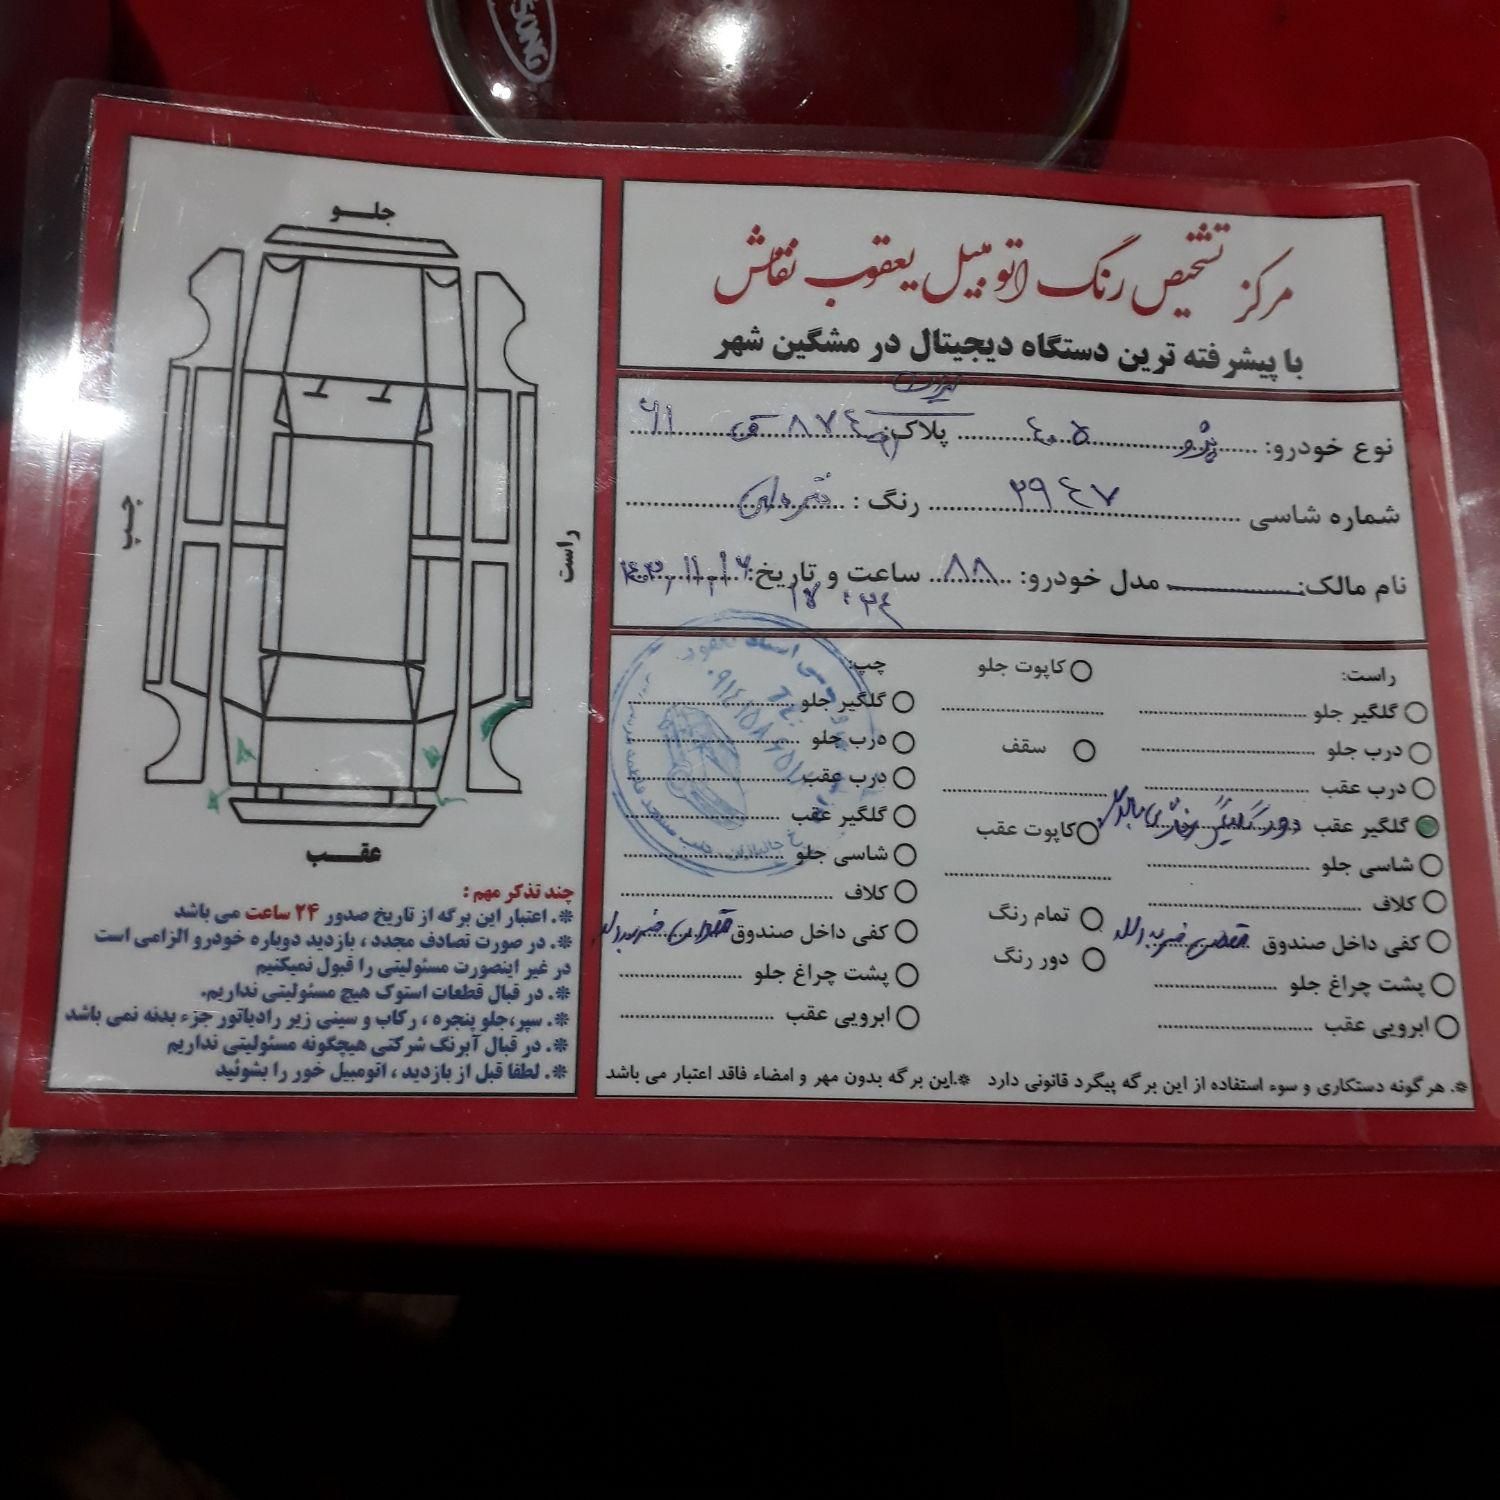 SONG
مرکز تشخیص رنگ اتومبیل یعقوب نقاش
با پیشرفته ترین دستگاه دیجیتال در مشگین شهر
نوع خودرو: پژو ۴۰۵ پلاک: ۸۷۴ ق ۶۱
شماره شاسی ۲۹۴۷ رنگ: نقره ای
نام مالک: مدل خودرو: ۸۸ ساعت و تاریخ:
راست:
گلگیر جلو
درب جلو
درب عقب
گلگیر عقب دور گلگیر
شاسی جلو
کلاف
کفی داخل صندوق
پشت چراغ جلو
ابرویی عقب
کاپوت جلو
سقف
کاپوت عقب
تمام رنگ
دور رنگ
چپ:
گلگیر جلو
درب جلو
درب عقب
گلگیر عقب
شاسی جلو
کلاف
کفی داخل صندوق
پشت چراغ جلو
ابرویی عقب
*. هر گونه دستکاری و سوء استفاده از این برگه پیگرد قانونی دارد *.این برگه بدون مهر و امضاء فاقد اعتبار می باشد
جلـــو
چپ
راست
عقـــب
چند تذکر مهم :
*. اعتبار این برگه از تاریخ صدور ۲۴ ساعت می باشد
*. در صورت تصادف مجدد ، بازدید دوباره خودرو الزامی است
در غیر اینصورت مسئولیتی را قبول نمیکنیم
*. در قبال قطعات استوک هیچ مسئولیتی نداریم.
*. سپر،جلو پنجره ، رکاب و سینی زیر رادیاتور جزء بدنه نمی باشد
*. در قبال آبرنگ شرکتی هیچگونه مسئولیتی نداریم
*. لطفا قبل از بازدید ، اتومبیل خور را بشوئید